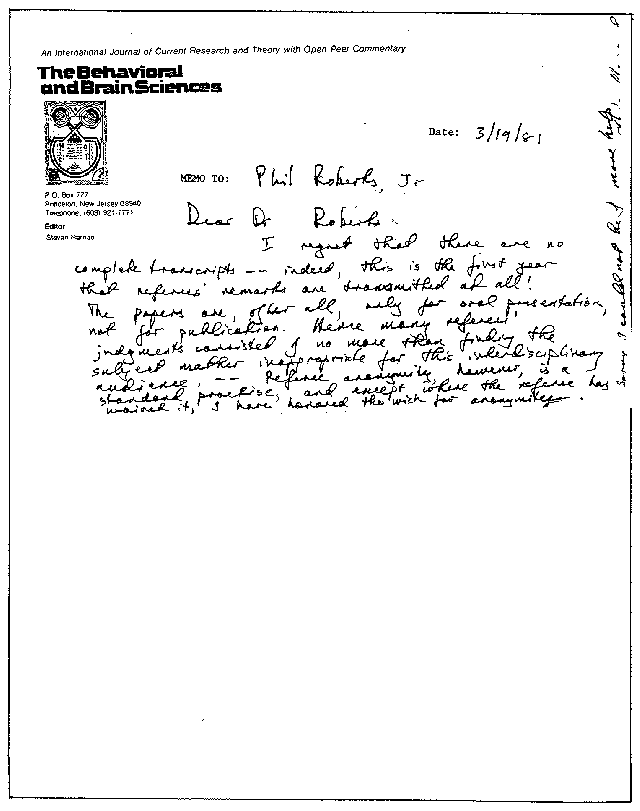 An International Journal of Current Research and Theory with Open Peer Commentary
The Behavioral
and Brain Sciences
Date: 3/19/81
MEMO TO: Phil Roberts, Jr
P.O. Box 777
Princeton, New Jersey 08540
Telephone: (609) 921-7771
Editor
Stevan Harnad
Dear Dr Roberts -
I regret that there are no
complete transcripts -- indeed, this is the first year
that referees' remarks are transmitted at all!
The papers are, after all, only for oral presentation,
not for publication. Hence many referees'
judgments consisted of no more than finding the
subject matter inappropriate for this interdisciplinary
audience. -- Referee anonymity, however, is a
standard practise, and except where the referee has
waived it, I have honored the wish for anonymity.
Sorry I could not be of more help